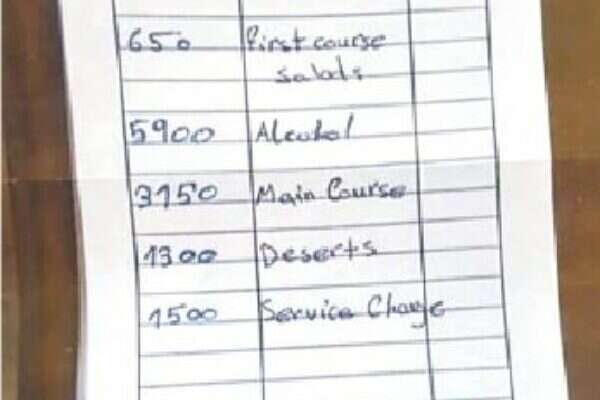 650 First course
salads
5900 Alcohol
3150 Main Course
1300 Deserts
1500 Service Charge